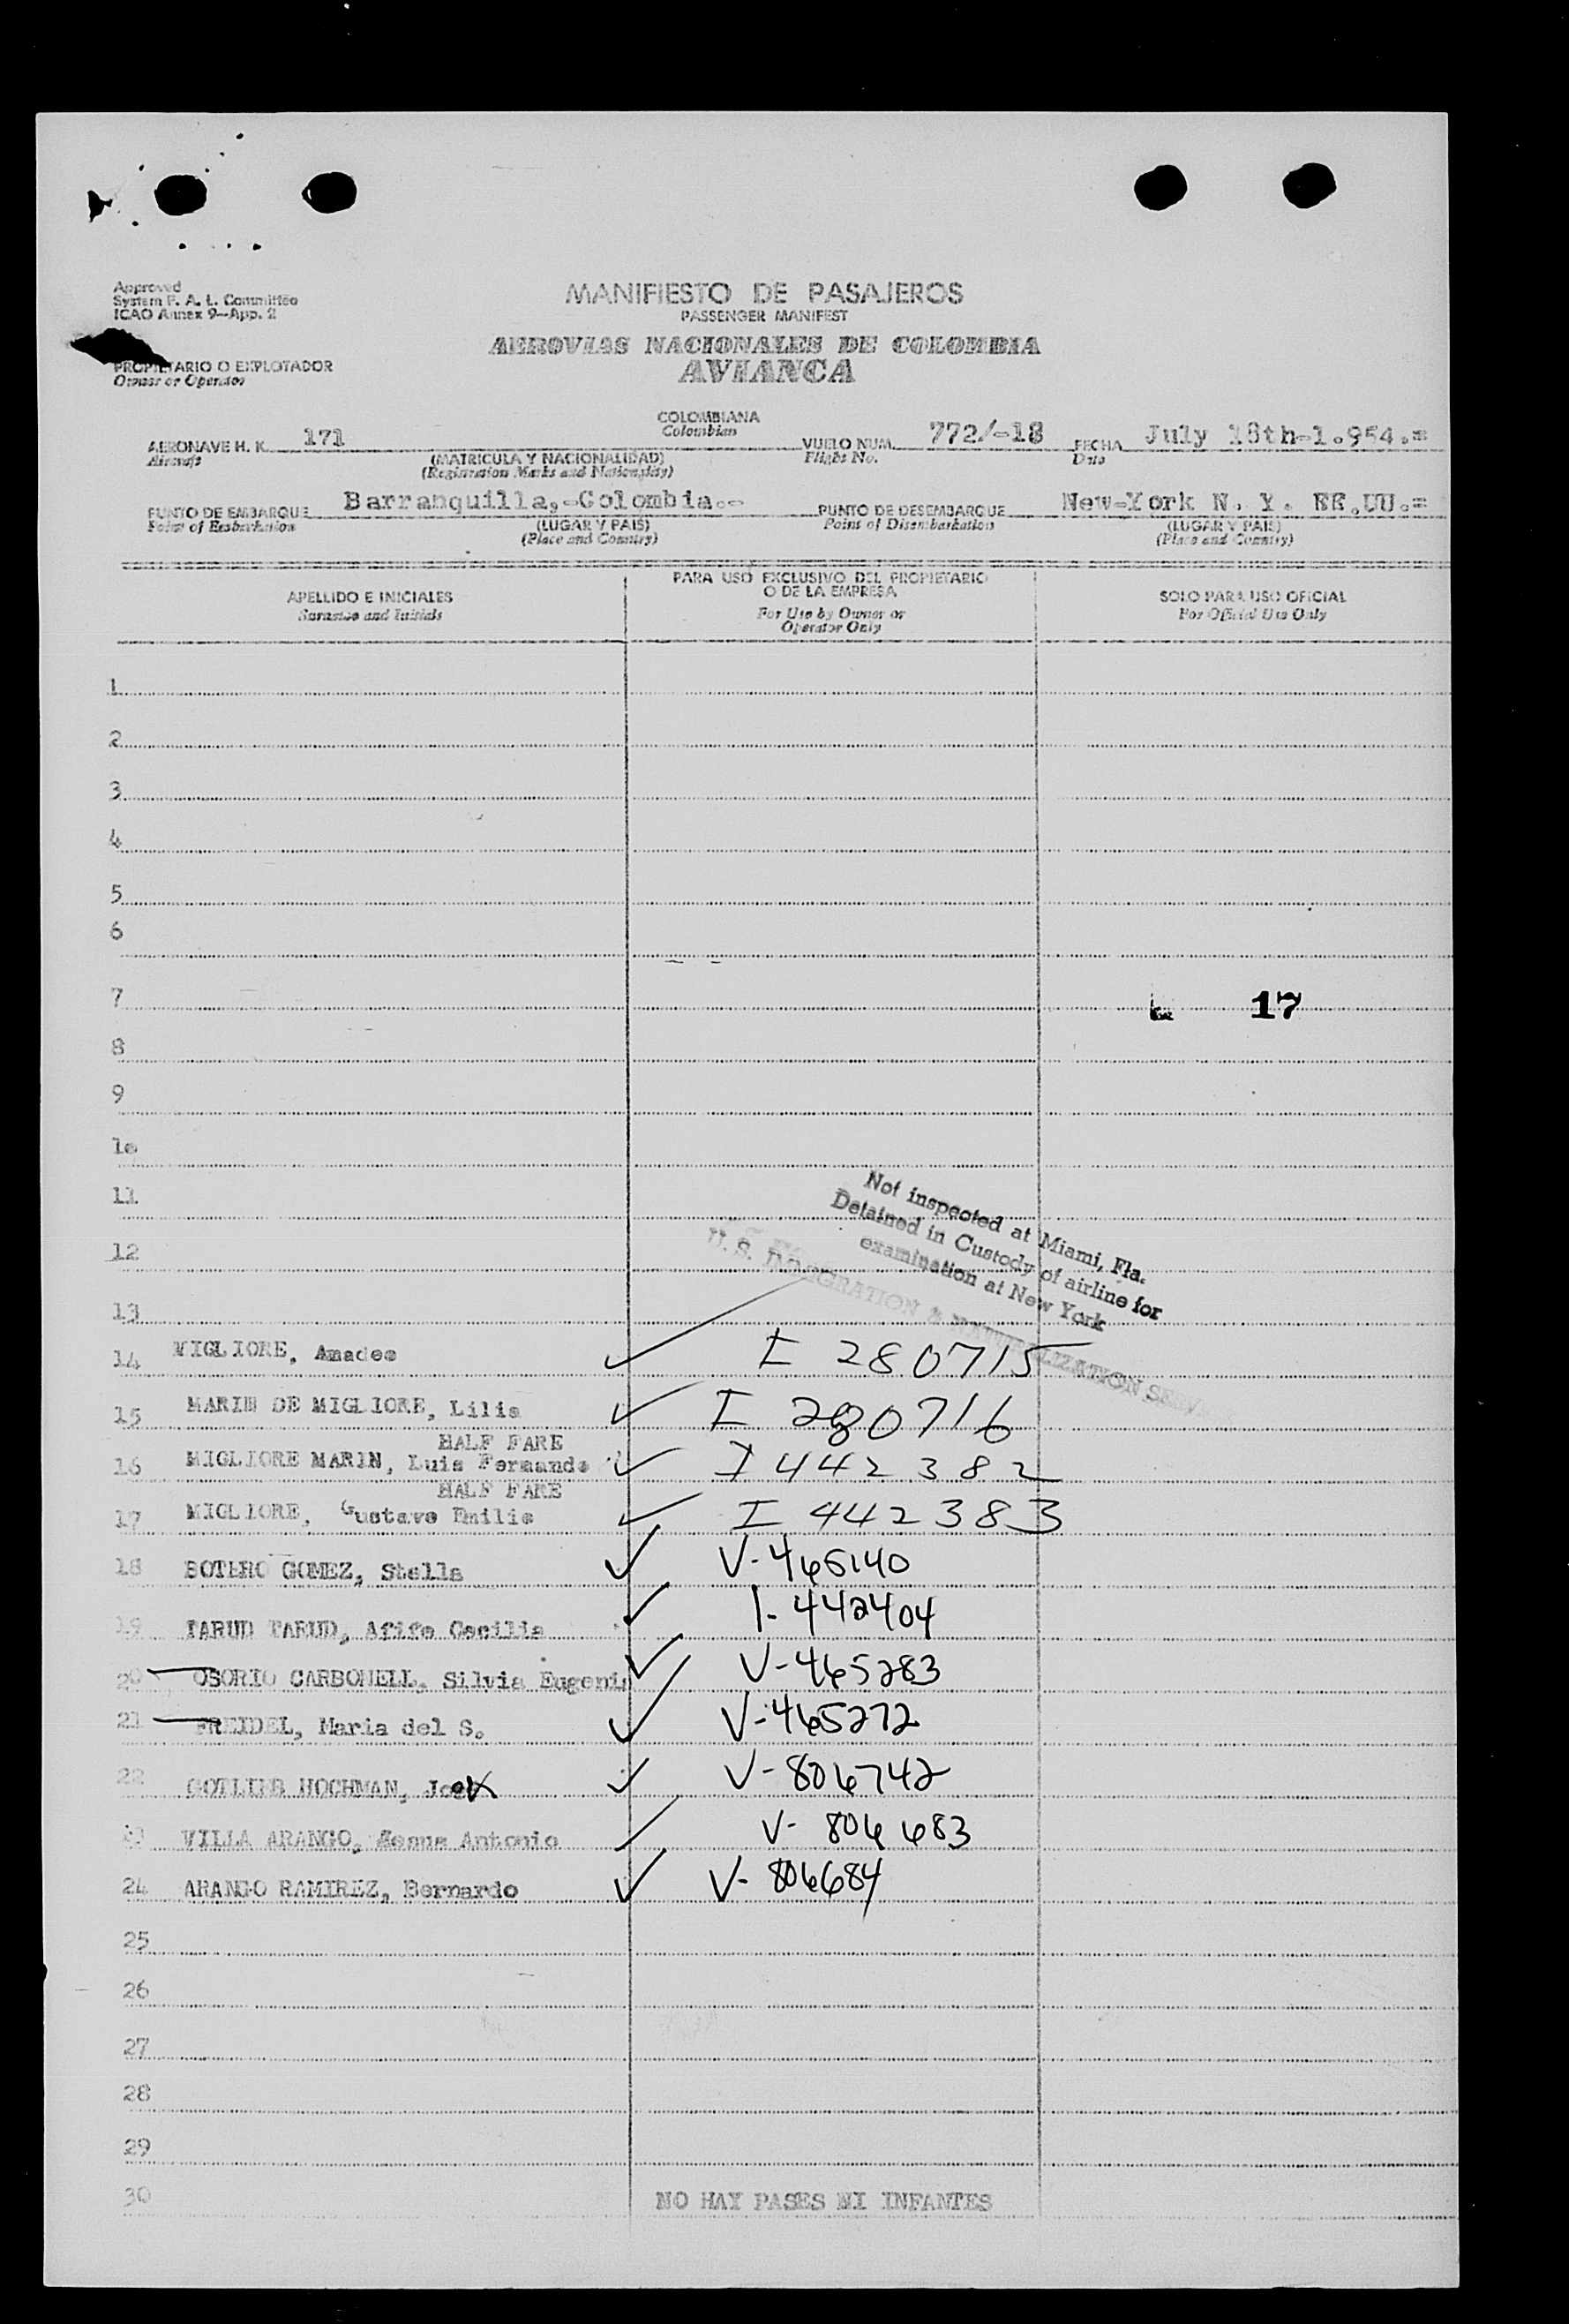 Approved
System F. A. L. Committee
ICAO Annex 9—App. 2
MANIFIESTO DE PASAJEROS
PASSENGER MANIFEST
AEROVIAS NACIONALES DE COLOMBIA
AVIANCA
PROPIETARIO O EXPLOTADOR
Owner or Operator
COLOMBIANA
Colombian
AERONAVE H. K. 171 VUELO NUM. 772/-18 FECHA July 18th-1.954.=
Aircraft (MATRICULA Y NACIONALIDAD) Flight No. Date
(Registration Marks and Nationality)
PUNTO DE EMBARQUE Barranquilla,-Colombia.- PUNTO DE DESEMBARQUE New-York N. Y. EE.UU.=
Point of Embarkation (LUGAR Y PAIS) Point of Disembarkation (LUGAR Y PAIS)
(Place and Country) (Place and Country)
APELLIDO E INICIALES
Surname and Initials
PARA USO EXCLUSIVO DEL PROPIETARIO
O DE LA EMPRESA
For Use by Owner or
Operator Only
SOLO PARA USO OFICIAL
For Official Use Only
1
2
3
4
5
6
7 17
8
9
10
11
12
13
Not inspected at Miami, Fla.
Detained in Custody of airline for
examination at New York
U. S. IMMIGRATION & NATURALIZATION
14 MIGLIORE, Amadeo I 280715
15 MARIN DE MIGLIORE, Lilia I 280716
HALF FARE
16 MIGLIORE MARIN, Luis Fernando I 442382
HALF FARE
17 MIGLIORE, Gustavo Emilio I 442383
18 BOTERO GOMEZ, Stella V-465140
19 TARUD TARUD, Afife Cecilia I-442404
20 OSORIO CARBONELL, Silvia Eugenia V-465283
21 FREIDEL, Maria del S. V-465272
22 GOTLIEB HOCHMAN, V-806742
23 VILLA ARANGO, Antonio V-806683
24 ARANGO RAMIREZ, Bernardo V-806684
25
26
27
28
29
30 NO HAY PASES NI INFANTES